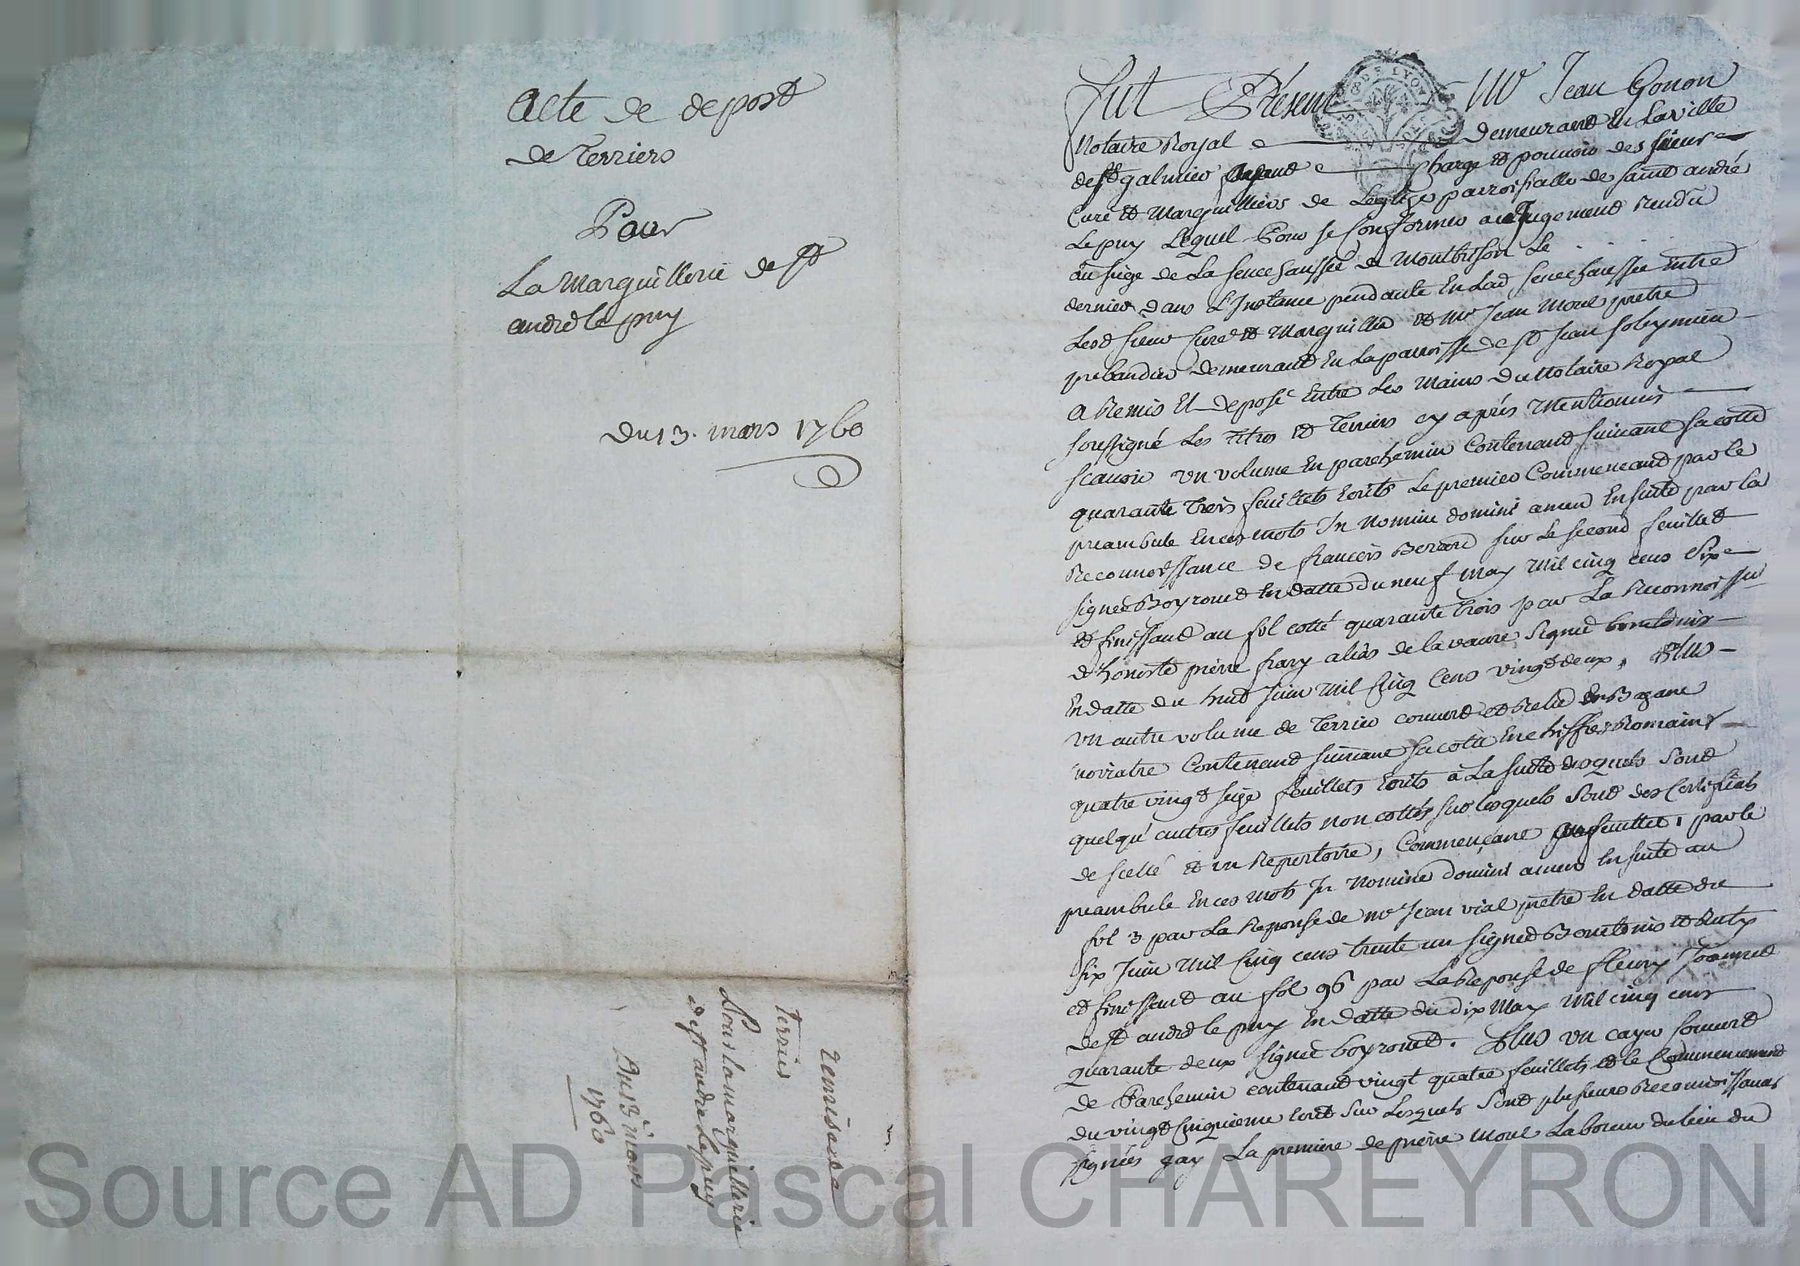 Acte de depost
de Terriers
Pour
La Marguillerie de St
andré le puy
Du 13. mars 1760
Remise de
Terriers
Pour la marguillerie
de st andré le puy
Du 13 mars
1760
fut Présent Mr Jean Gonon
Notaire Royal demeurant En La ville
de St galmier charge et pouvoir des sieurs
Curé et Marguilliers de L'eglise parroissialle de saint andré
Le puy Lequel Pour se conformer au Jugement Rendu
au siege de La senechaussée de Montbrison Le
dernier dans L'Instance pendante En Lad. senechaussée Entre
Lesd sieur Curé et Marguillier et Mr Jean Morel pretre
prebandier demeurant En La parroisse de St Jean soleymieu
a Remis Et deposé Entre Les Mains du Notaire Royal
soussigné Les titres et Terriers cy aprés Mentionnés
scavoir un volume En parchemin Contenant suivant sa cotte
quarante trois feuillets Ecrits Le premier Commencant par le
preambule En ces mots In Nomine domini amen Ensuite par la
Reconnoissance de francois Berard sur Le second feuillet
signée Boyronet En datte du neuf may Mil cinq cens six
et finissant au fol cotté quarante trois par La Reconnoissce
d'honeste pierre frary aliàs de la vavre signée
En datte du huit Juin Mil Cinq Cens vingt deux, Plus
un autre volume de Terrier couvert et Relié En Bazane
noiratre Contenant suivant sa cotte En chiffres Romains
quatre vingt seize feuillets Ecrits à La suite desquels sont
quelqu'autres feuillets non cottés sur lesquels sont des Certificats
de scellé et un Repertoire, Commençant feuillet 1 par le
preambule En ces mots In Nomine domini amen Ensuite au
fol 3 par La Reponse de Mr Jean vial pretre En datte du
six Juin Mil Cinq cens trente un signée
et finissant au fol 96 par La Reponse de fleury Joannet
de St andré le puy En datte du dix May Mil cinq cens
quarante deux signée boyronet. Plus un cayer couvert
de Parchemin contenant vingt quatre feuillets et le Commencement
du vingt Cinquieme Ecrit sur Lesquels sont plusieurs Reconnoissances
signées gay La premiere de pierre Morel Laboureur du lieu du
Source AD Pascal CHAREYRON